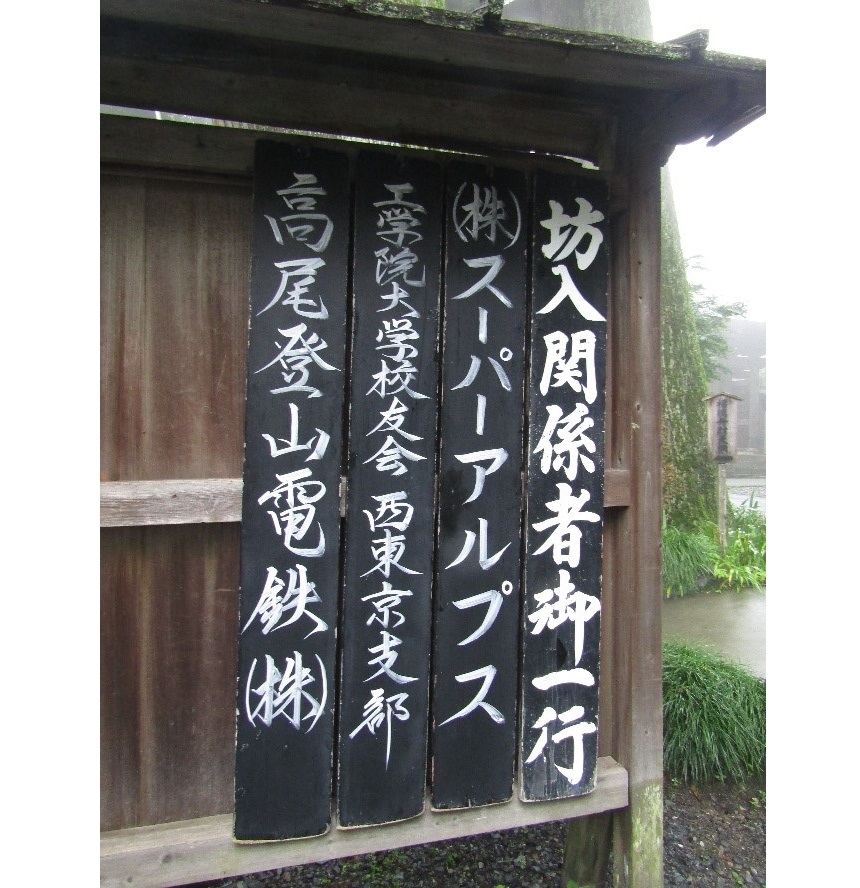 坊入関係者御一行
㈱スーパーアルプス
工学院大学校友会 西東京支部
高尾登山電鉄㈱